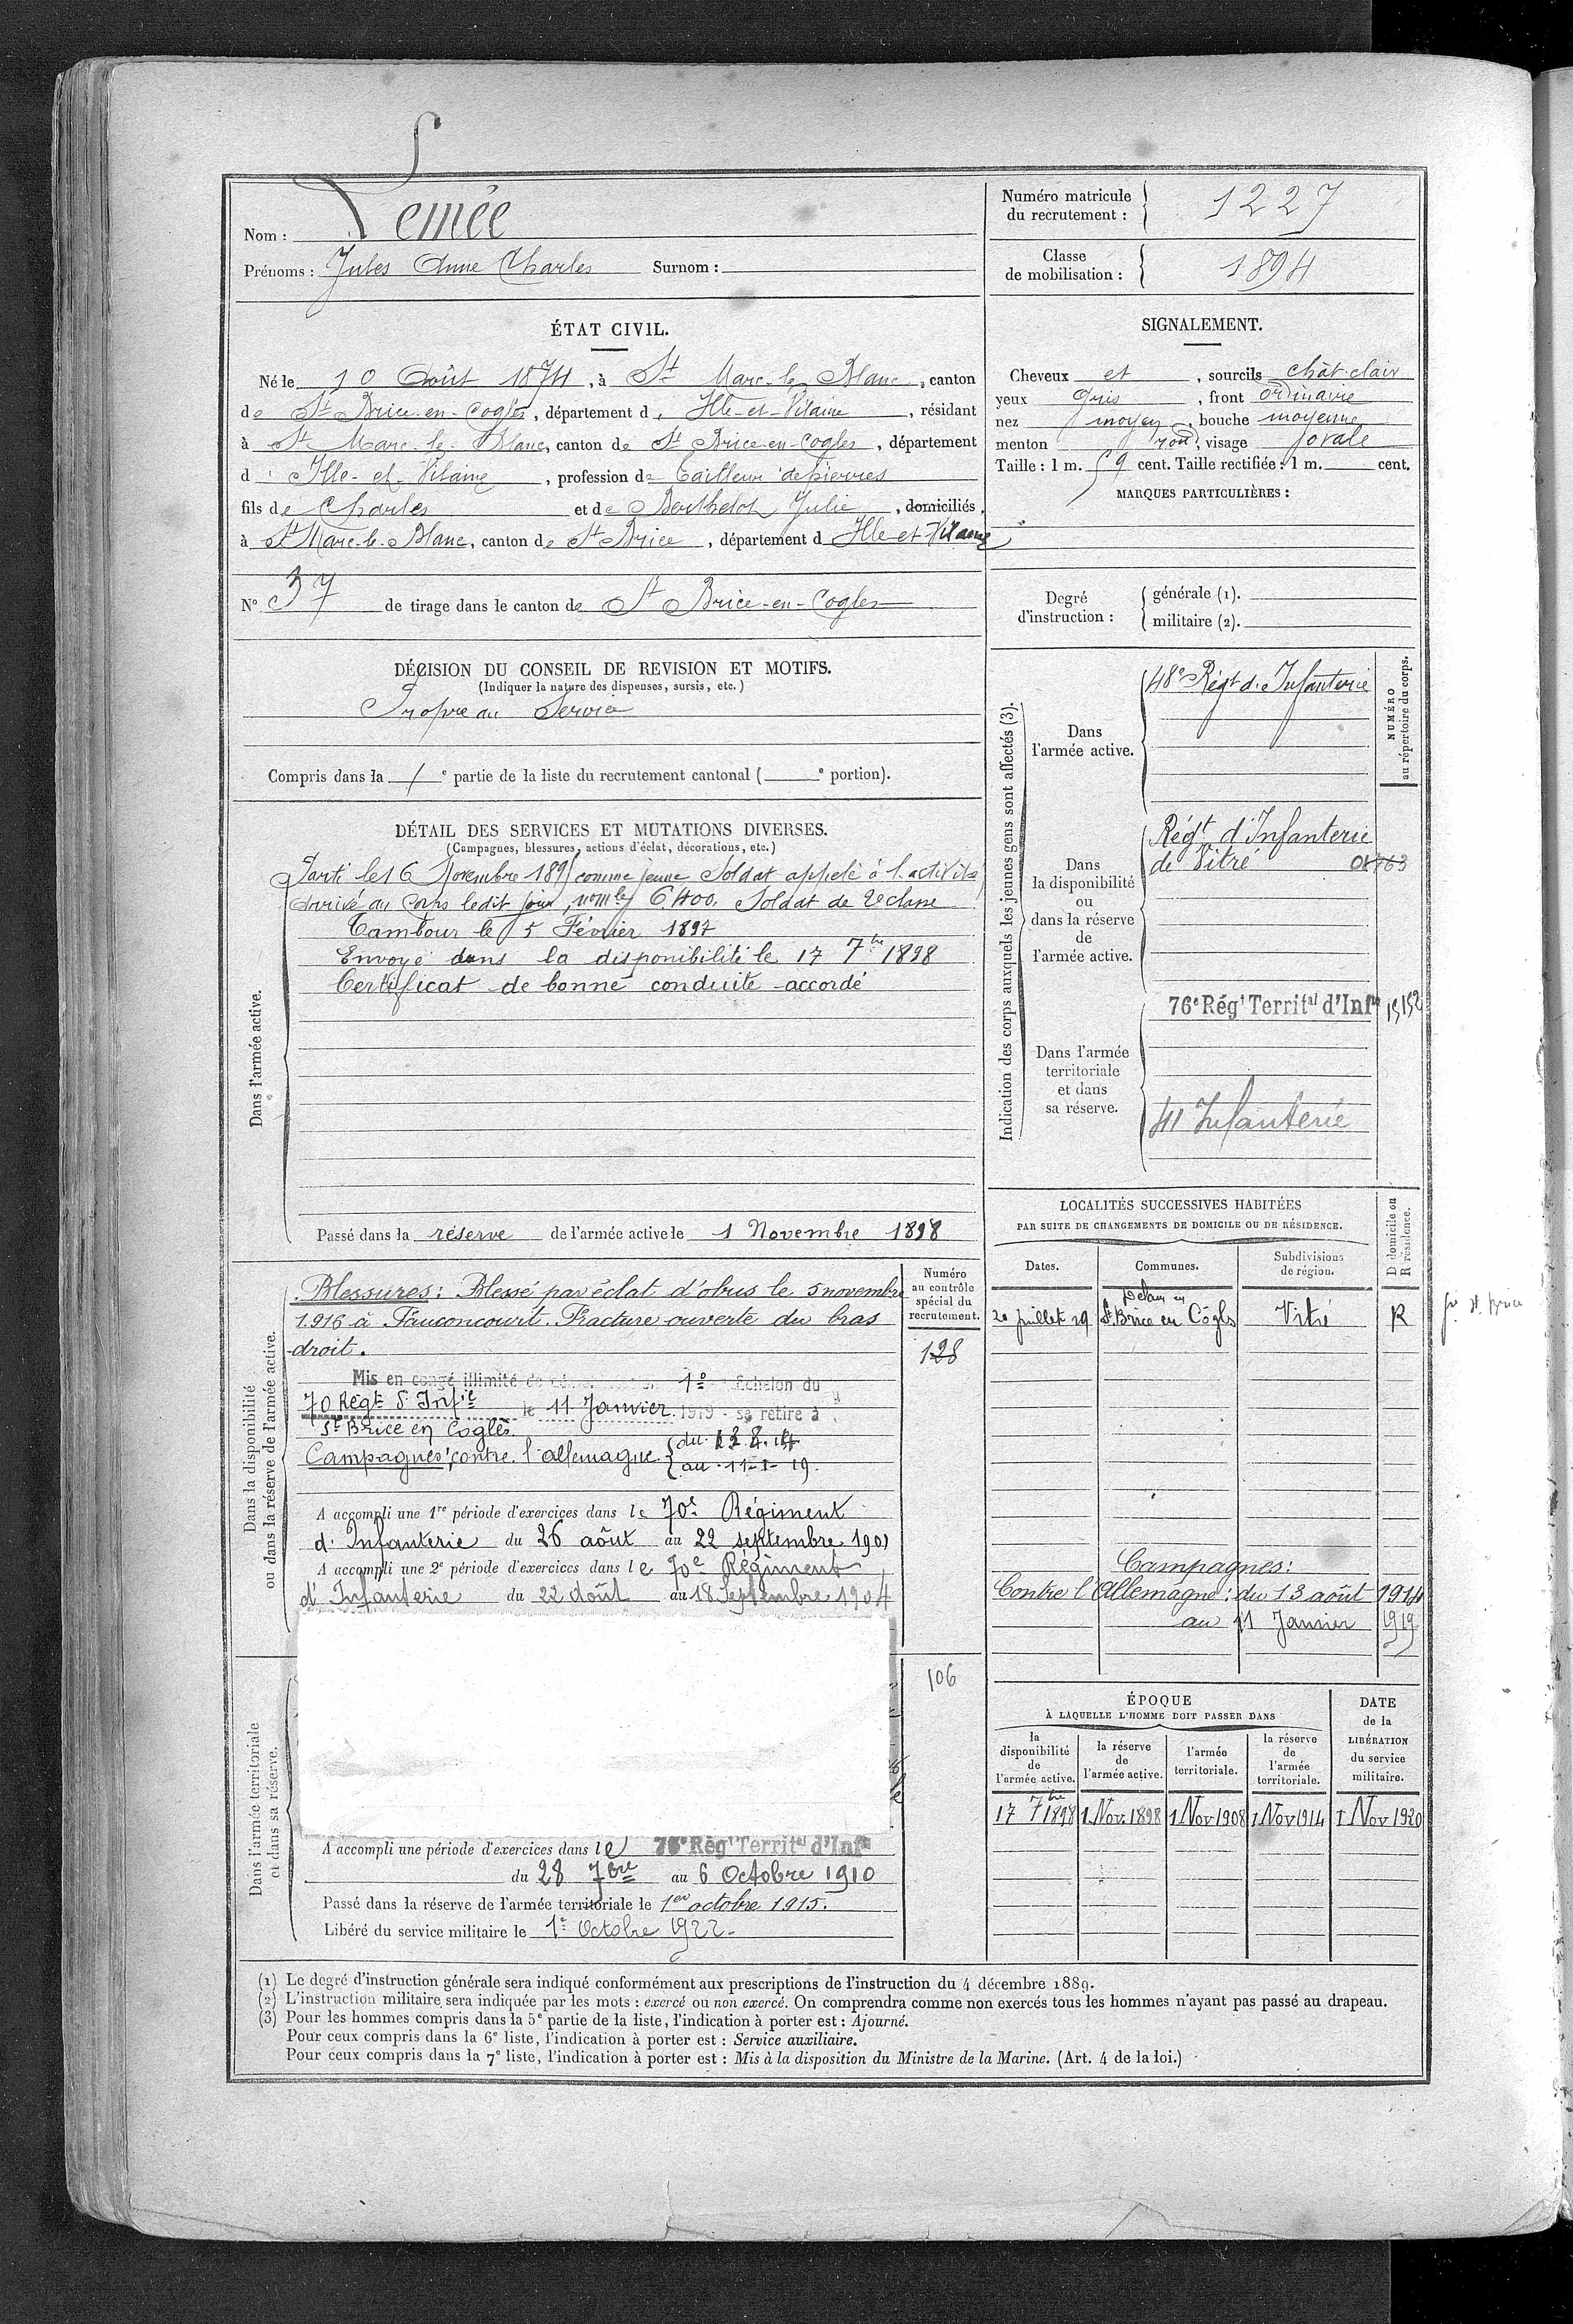 Nom : Lemée
Prénoms : Jules Anne Charles Surnom :
Numéro matricule du recrutement : 1227
Classe de mobilisation : 1894
ÉTAT CIVIL.
Né le 10 Août 1874, à St Marc-le-Blanc, canton
de St Brice-en-Cogles, département d'Ille-et-Vilaine, résidant
à St Marc-le-Blanc, canton de St Brice-en-Cogles, département
d'Ille-et-Vilaine, profession de tailleur de pierres
fils de Charles et de Berthelot Julie, domiciliés
à St Marc-le-Blanc, canton de St Brice, département d Ille-et-Vilaine
N° 37 de tirage dans le canton de St Brice-en-Cogles
SIGNALEMENT.
Cheveux et, sourcils chât-clair
yeux gris, front ordinaire
nez moyen, bouche moyenne
menton rond, visage ovale
Taille : 1 m. 59 cent. Taille rectifiée : 1 m. cent.
MARQUES PARTICULIÈRES :
Degré d'instruction : générale (1).
militaire (2).
DÉCISION DU CONSEIL DE REVISION ET MOTIFS.
(Indiquer la nature des dispenses, sursis, etc.)
Propre au Service
Compris dans la 1e partie de la liste du recrutement cantonal ( e portion).
DÉTAIL DES SERVICES ET MUTATIONS DIVERSES.
(Campagnes, blessures, actions d'éclat, décorations, etc.)
Dans l'armée active.
Parti le 16 Novembre 189 comme jeune Soldat appelé à l'activité
Arrivé au Corps ledit jour, no mle 6.400. Soldat de 2e classe
Tambour le 5 Février 1897
Envoyé dans la disponibilité le 17 7bre 1898
Certificat de bonne conduite accordé
Passé dans la réserve de l'armée active le 1 Novembre 1898
Indication des corps auxquels les jeunes gens sont affectés (3).
NUMÉRO au répertoire du corps.
Dans l'armée active.
48e Régt d'Infanterie
Dans la disponibilité ou dans la réserve de l'armée active.
Régt d'Infanterie
de Vitré
Dans l'armée territoriale et dans sa réserve.
76e Régt Territal d'Infie 15152
41 Infanterie
Dans la disponibilité ou dans la réserve de l'armée active.
Numéro au contrôle spécial du recrutement.
128
Blessures : Blessé par éclat d'obus le 5 novembre
1.916 à Fauconcourt. Fracture ouverte du bras
droit.
Mis en congé illimité de 1e Échelon du
70 Régt d'Infie le 11 Janvier 1919 - se retire à
St Brice en Cogles
Campagnes contre l'allemagne { du
au 11-1-19.
A accompli une 1re période d'exercices dans le 70e Régiment
d'Infanterie du 26 août au 22 septembre 1901
A accompli une 2e période d'exercices dans le 70e Régiment
d'Infanterie du 22 août au 18 Septembre 1904
LOCALITÉS SUCCESSIVES HABITÉES
PAR SUITE DE CHANGEMENTS DE DOMICILE OU DE RÉSIDENCE.
Dates. Communes. Subdivisions de région. D domicile ou R résidence.
20 juillet 19 St Brice en Cogles Vitré R
Campagnes :
Contre l'Allemagne : du 13 août 1914
au 11 Janvier 1919
Dans l'armée territoriale et dans sa réserve.
106
A accompli une période d'exercices dans le 76e Régt Territal d'Infie
du 28 7bre au 6 Octobre 1910
Passé dans la réserve de l'armée territoriale le 1er octobre 1915.
Libéré du service militaire le 1er Octobre 1922.
ÉPOQUE
À LAQUELLE L'HOMME DOIT PASSER DANS
la disponibilité de l'armée active.
la réserve de l'armée active.
l'armée territoriale.
la réserve de l'armée territoriale.
DATE de la LIBÉRATION du service militaire.
17 7bre 1898 1 Nov. 1898 1 Nov 1908 1 Nov 1914 1 Nov 1920
(1) Le degré d'instruction générale sera indiqué conformément aux prescriptions de l'instruction du 4 décembre 1889.
(2) L'instruction militaire sera indiquée par les mots : exercé ou non exercé. On comprendra comme non exercés tous les hommes n'ayant pas passé au drapeau.
(3) Pour les hommes compris dans la 5e partie de la liste, l'indication à porter est : Ajourné.
Pour ceux compris dans la 6e liste, l'indication à porter est : Service auxiliaire.
Pour ceux compris dans la 7e liste, l'indication à porter est : Mis à la disposition du Ministre de la Marine. (Art. 4 de la loi.)